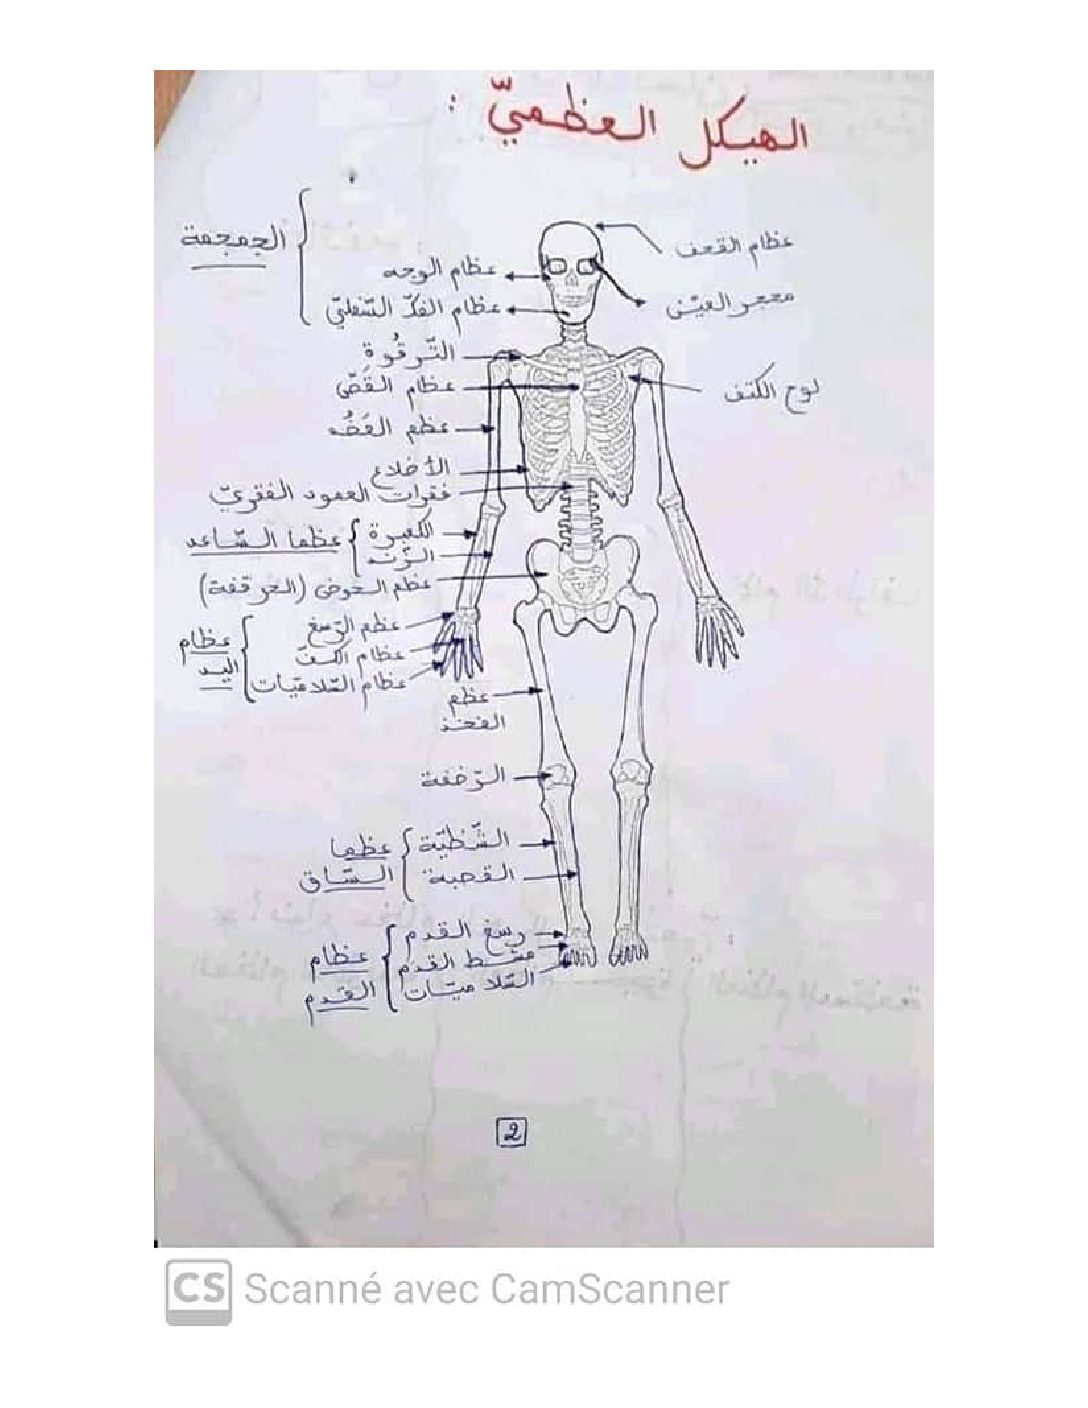 الهيكل العظميّ :
عظام القحف
الجمجمة
عظام الوجه
محجر العين
عظام الفكّ السّفليّ
التّرقُوة
عظام القَصّ
لوح الكتف
عظم العَضُد
الأضلاع
فقرات العمود الفقريّ
الكعبرة
عظما السّاعد
الزّند
عظم الحوض (الحرقفة)
عظم الرّسغ
عظام الكفّ
عظام اليد
عظام السّلاميّات
عظم
الفخذ
الرّضفة
الشّظيّة
عظما
القصبة
السّاق
رسغ القدم
مشط القدم
عظام
السّلاميّات
القدم
2
CS Scanné avec CamScanner